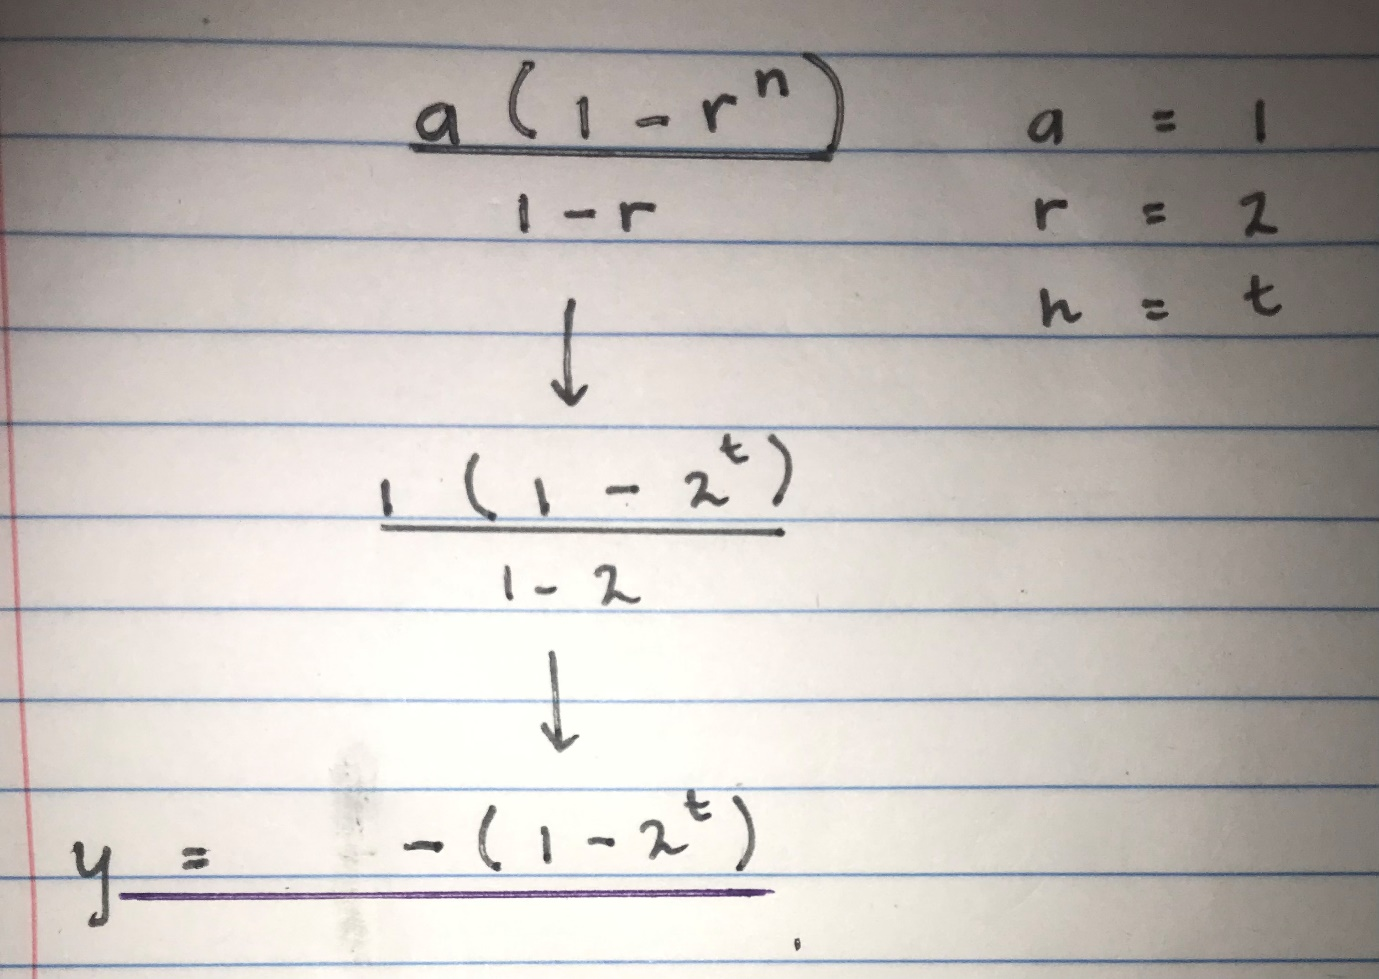 a(1-rⁿ) a = 1
1-r r = 2
n = t
1(1-2ᵗ)
1-2
y = -(1-2ᵗ)